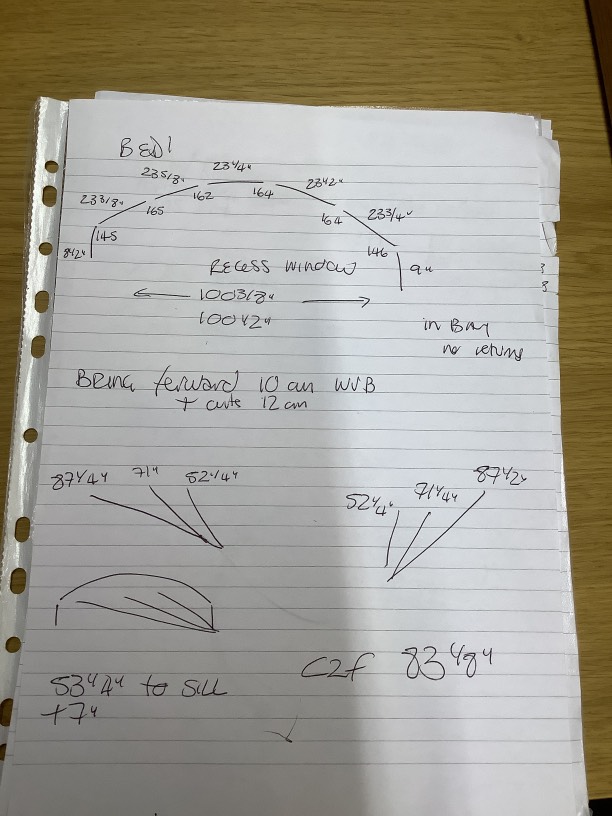 BED 1
23 5/8" 23 1/4" 23 1/2"
23 3/8" 162 164 23 3/4"
165 164
145 146
8 1/2" 9"
RECESS WINDOW
100 3/8"
100 1/2"
in BAY
no returns
BRING forward 10 cm WVB
+ curte 12 cm
87 1/4" 71" 52 1/4"
52 1/4" 71 1/4" 87 1/2"
C2F 83 1/8"
53 1/4" to SILL
+7"